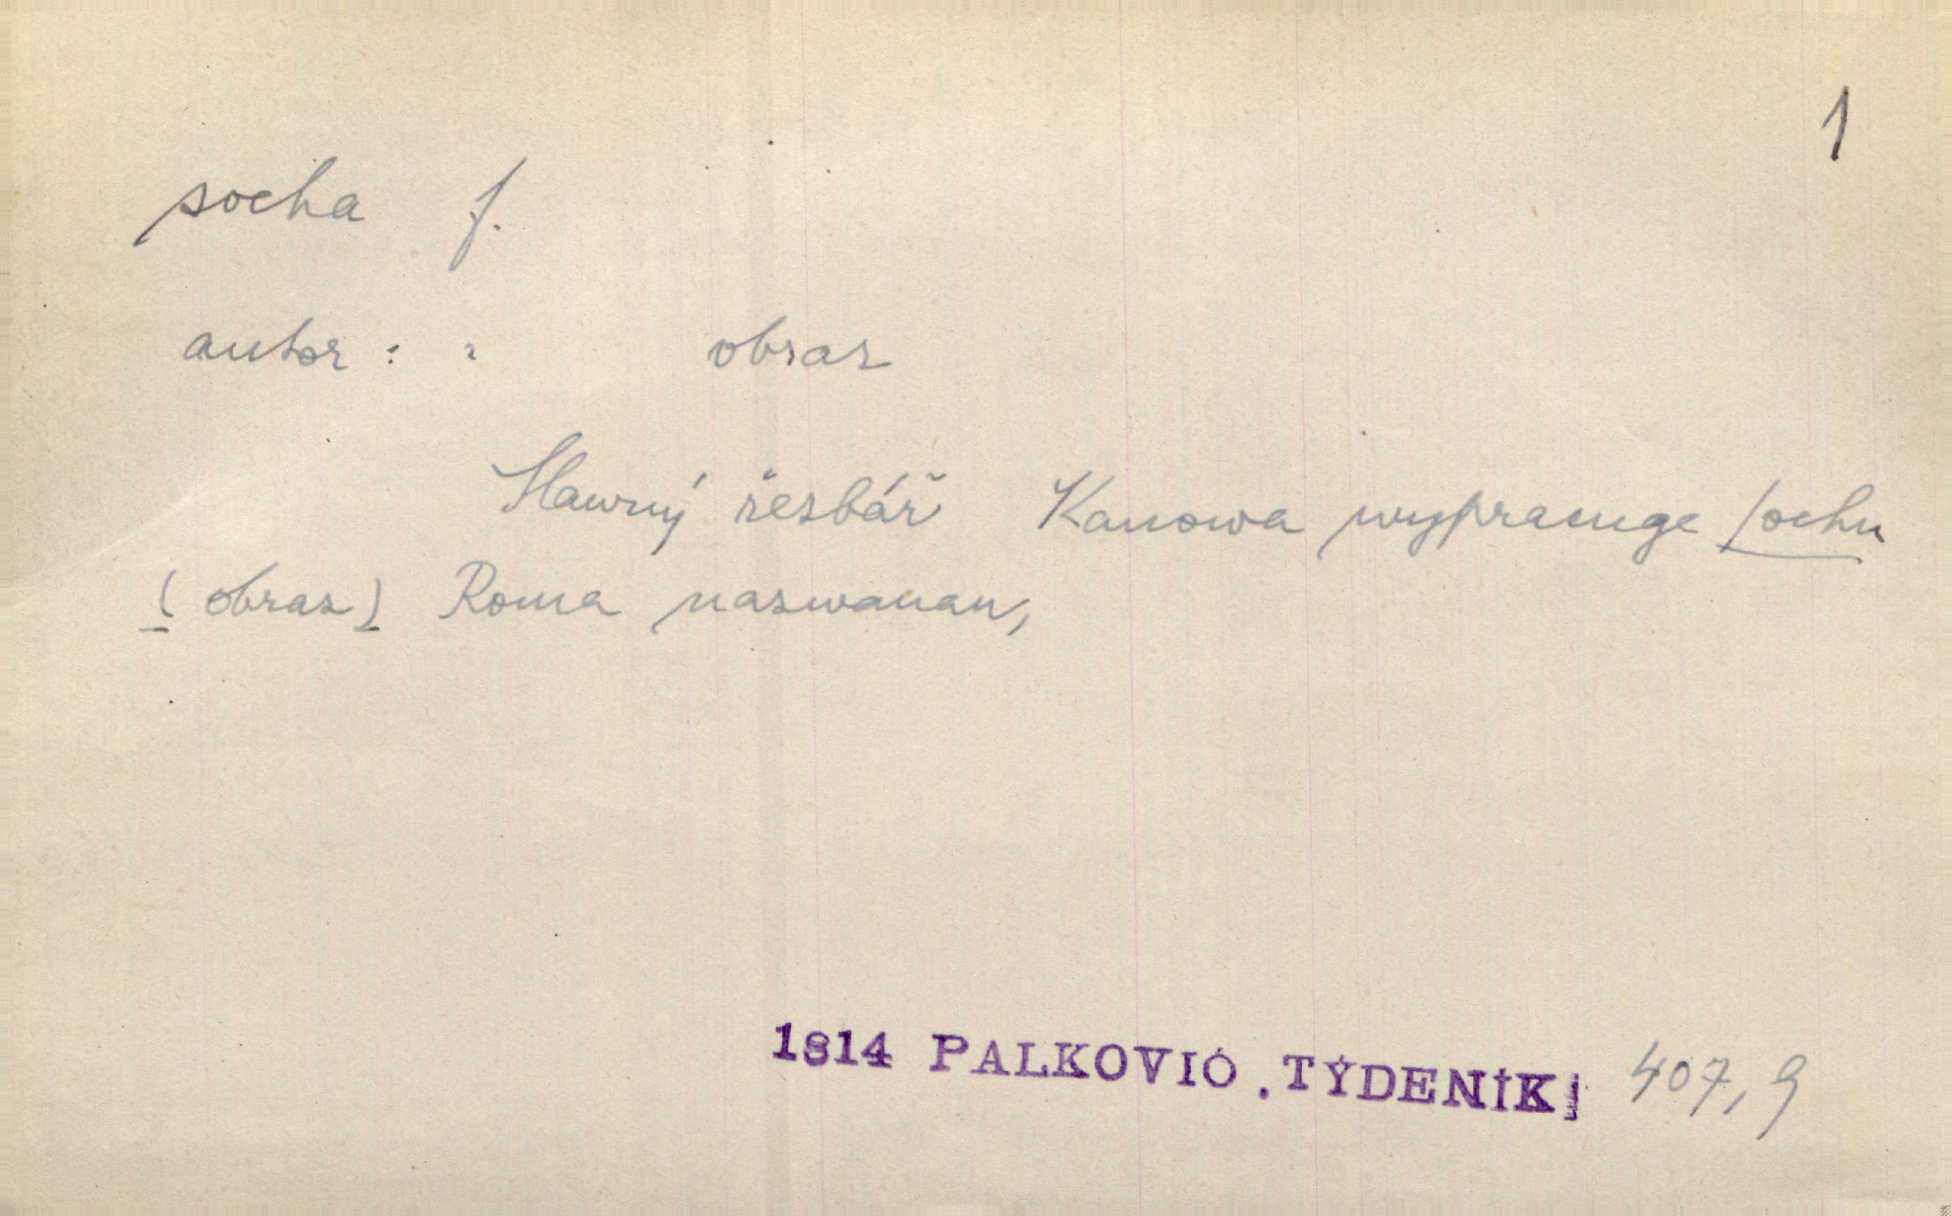 1
socha f.
autor : : obraz
Slawný řezbář Kanowa wypracuge sochu
(obraz) Roma nazwanau,
1814 PALKOVIČ, TÝDENÍK; 407, 9